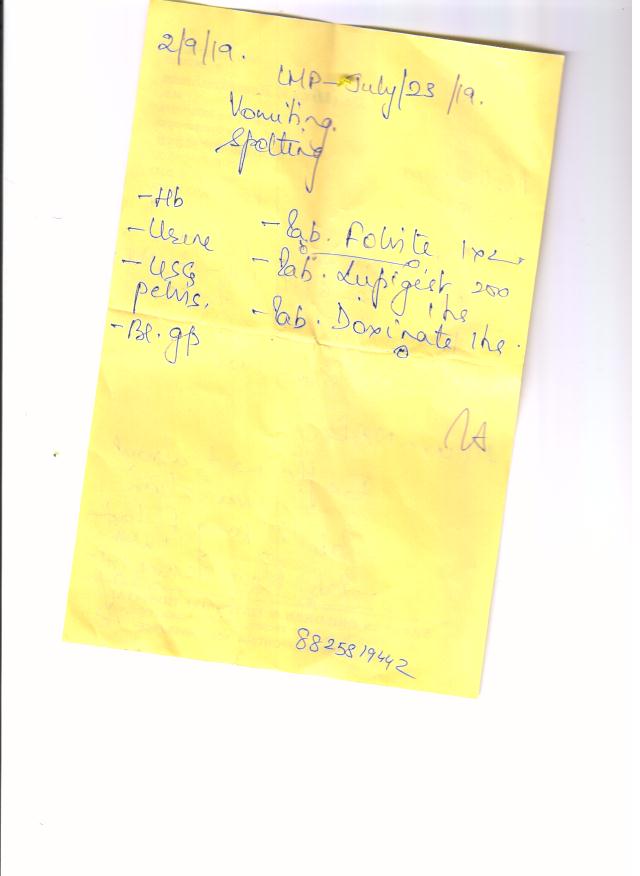 2/9/19.
LMP - July/23/19.
Vomiting.
Spotting
- Hb
- Urine
- USG
pelvis.
- Bl. gp
- Tab. Folvite 1x2
- Tab. Lupigest 200
1 hs
- Tab. Doxinate 1 hs.
8825819442